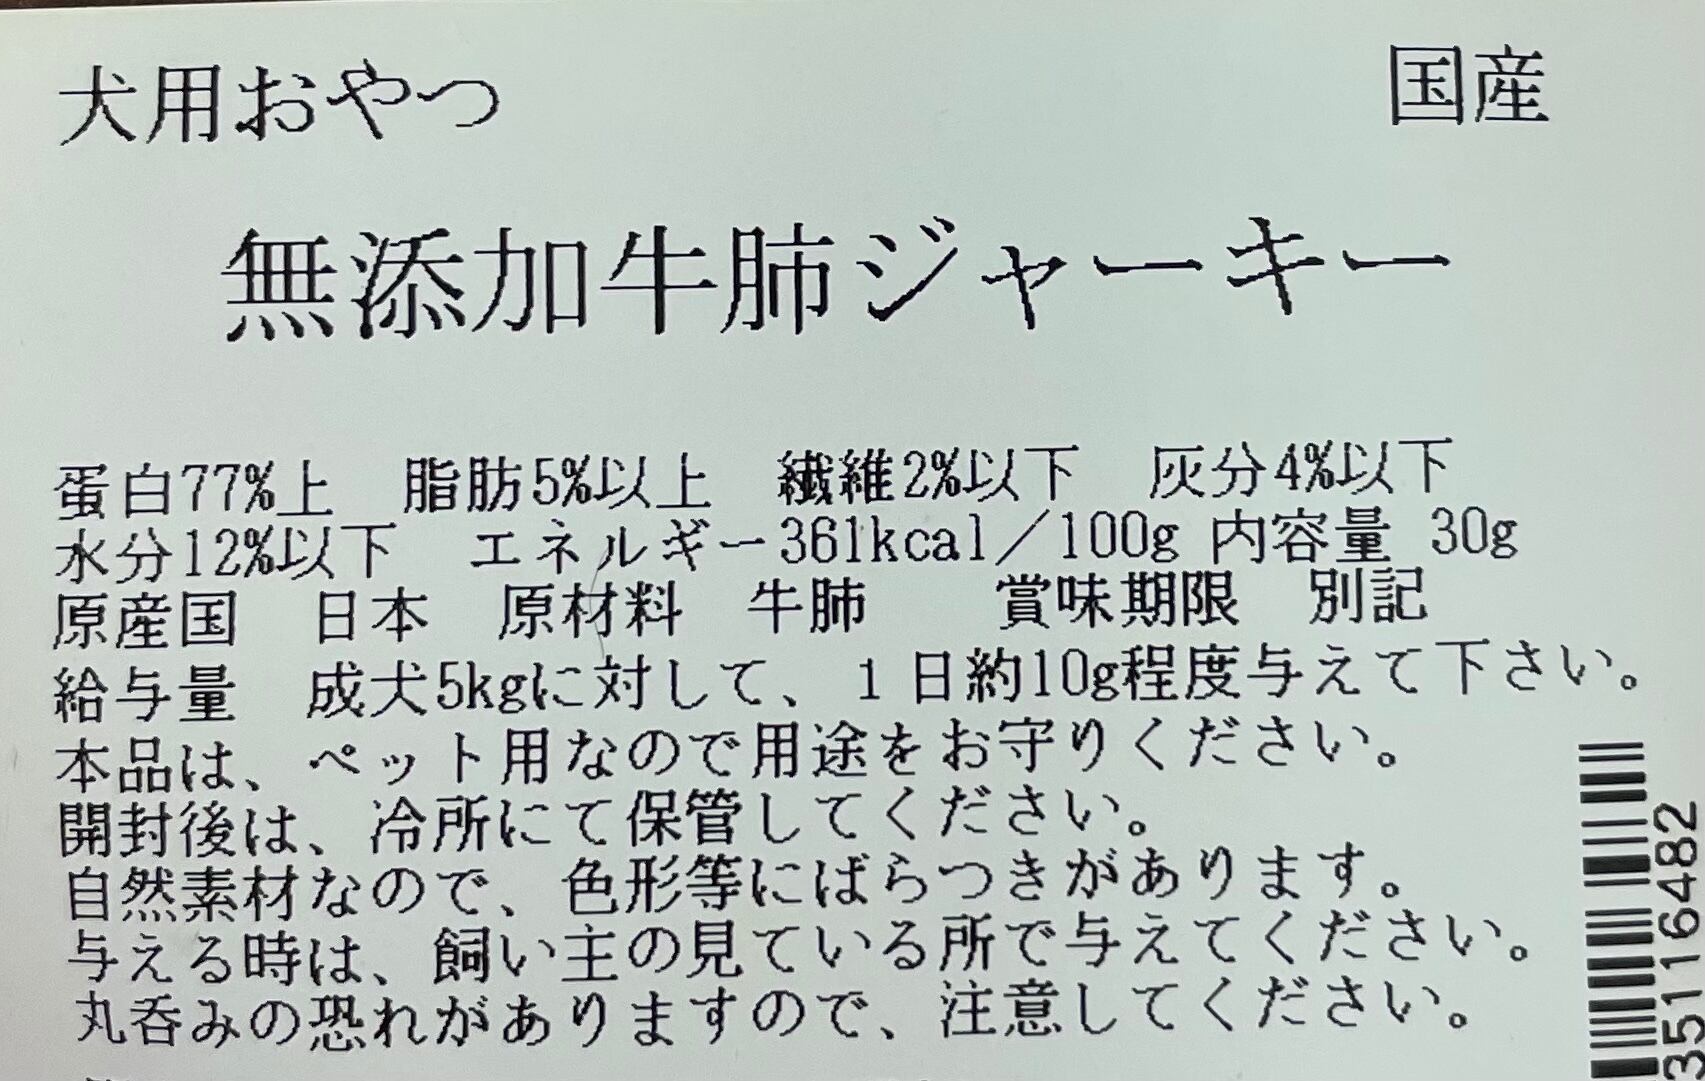 犬用おやつ　国産
無添加牛肺ジャーキー
蛋白77%上　脂肪5%以上　繊維2%以下　灰分4%以下
水分12%以下　エネルギー361kcal／100g 内容量 30g
原産国　日本　原材料　牛肺　　賞味期限　別記
給与量　成犬5kgに対して、１日約10g程度与えて下さい。
本品は、ペット用なので用途をお守りください。
開封後は、冷所にて保管してください。
自然素材なので、色形等にばらつきがあります。
与える時は、飼い主の見ている所で与えてください。
丸呑みの恐れがありますので、注意してください。
35116482